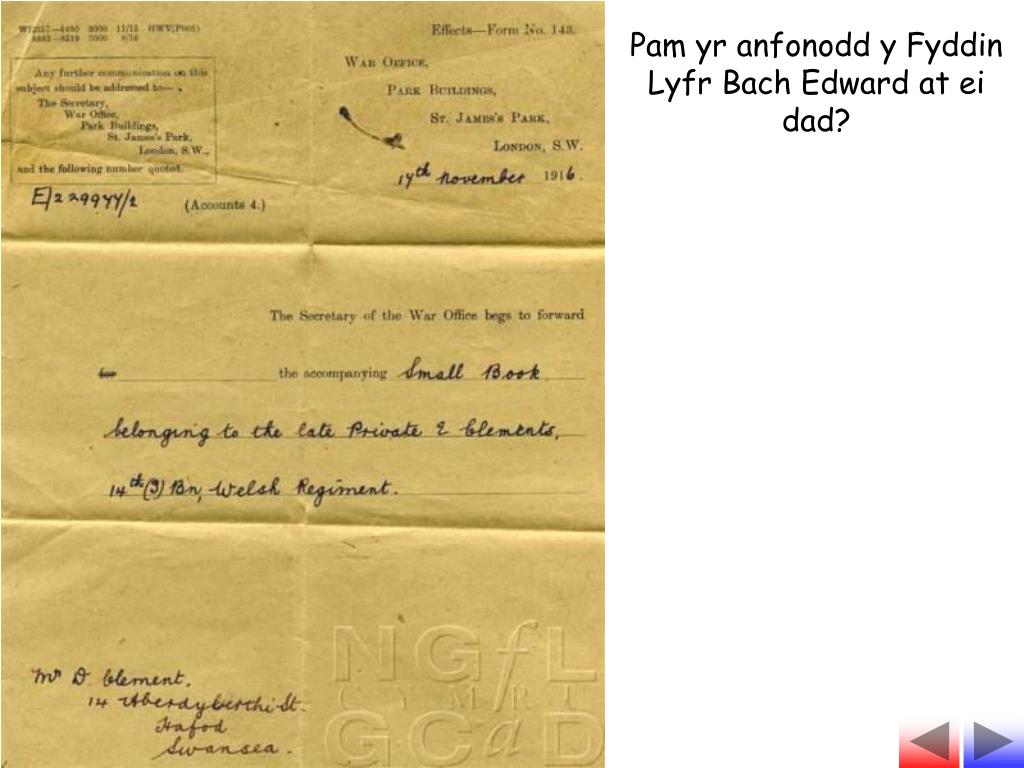 Effects—Form No. 143.
War Office,
Park Buildings,
St. James's Park,
London, S.W.
17th November 1916.
Any further communication on this
subject should be addressed to—
The Secretary,
War Office,
Park Buildings,
St. James's Park,
London, S.W.,
and the following number quoted.
(Accounts 4.)
The Secretary of the War Office begs to forward
for the accompanying Small Book
belonging to the late Private E Clements,
14th (S) Bn, Welsh Regiment.
Mr D. Clement.
14 Aberdyberthi St.
Hafod
Swansea.
NGfL
CYMRU
GCaD
Pam yr anfonodd y Fyddin
Lyfr Bach Edward at ei
dad?